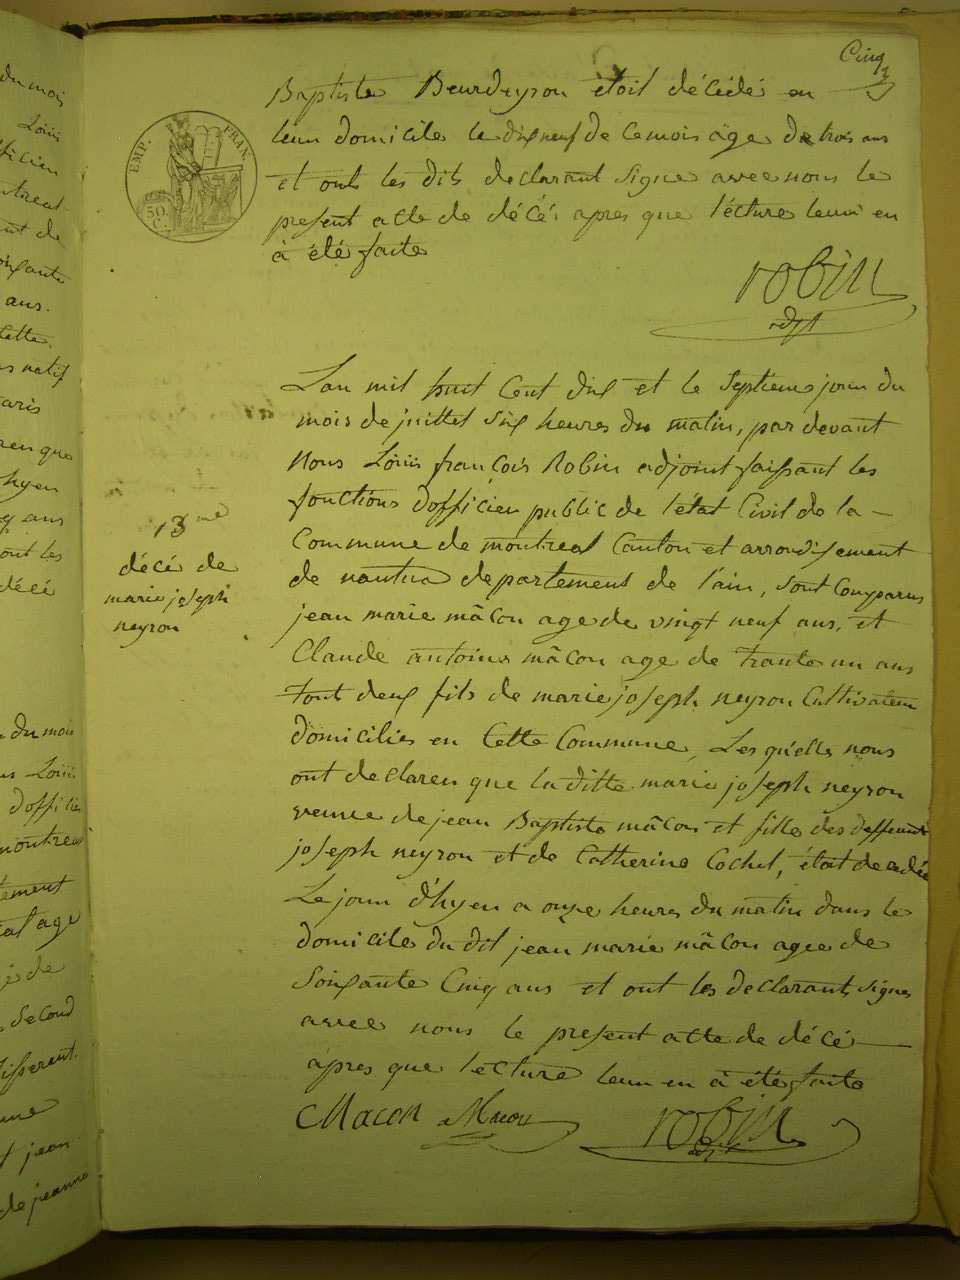 Cinq
Baptiste Beurdeyron étoit décédé en
leur domicile le dix neuf de ce mois âge de trois ans
et onts les dits declarant signe avec nous le
present acte de décé apres que lécture leur en
à été faite
EMP. FRAN.
50.
C.
robin
adjt
L'an mil huit Cent dix et le Septieme jour du
mois de juillet six heures du matin, par devant
Nous Loüis françois Robin adjoint faissant les
fonctions dofficier public de l'état Civil de la
Commune de montreal Canton et arrondisement
de nantua departement de l'ain, sont Comparus
jean marie mâcon age de vingt neuf ans, et
Claude antoine mâcon age de trante un ans
tout deux fils de marie joseph neyron Cultivateur
domiciliés en Cette Commune, Les quelle nous
ont declaren que la ditte marie joseph neyron
veuve de jean Baptiste mâcon et fille des deffeunt
joseph neyron et de Catherine Cochet, étoit decedée
Le jour d'hyer a onze heures du matin dans le
domicile du dit jean marie mâcon agee de
soixante Cinq ans et ont les declarants signes
avec nous le present acte de décé
âpres que lecture leur en à été faite
13me
décé de
marie joseph
neyron
CMacon Macon robin
adjt
du mois
Loüis
fficier
ans.
Cette
natif
aris
hyer
ans
ont les
décé
du mois
Loüis
dofficier
montreal
tement
age
de
second
jean
de jeanne